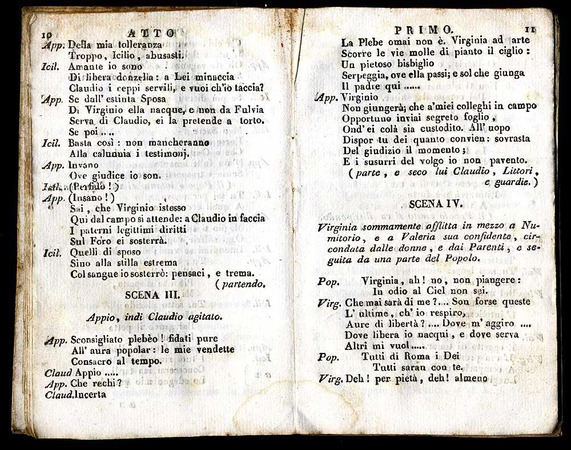 10 ATTO
App. Della mia tolleranza
Troppo, Icilio, abusasti.
Icil. Amante io sono
Di libera donzella: a Lei minaccia
Claudio i ceppi servili, e vuoi ch'io taccia?
App. Se dall'estinta Sposa
Di Virginio ella nacque, e non da Fulvia
Serva di Claudio, ei la pretende a torto.
Se poi ....
Icil. Basta così: non mancheranno
Alla calunnia i testimonj.
App. Invano
Ove giudice io son.
Icil. (Perfido!)
App. (Insano!)
Sai, che Virginio istesso
Qui dal campo si attende: a Claudio in faccia
I paterni legittimi diritti
Sul Foro ei sosterrà.
Icil. Quelli di sposo
Sino alla stilla estrema
Col sangue io sosterrò: pensaci, e trema.
(partendo.
SCENA III.
Appio, indi Claudio agitato.
App. Sconsigliato plebèo! fidati pure
All' aura popolar: le mie vendette
Consacro al tempo.
Claud Appio .....
App. Che rechi?
Claud. Incerta
PRIMO. 11
La Plebe omai non è. Virginia ad arte
Scorre le vie molle di pianto il ciglio:
Un pietoso bisbiglio
Serpeggia, ove ella passi; e sol che giunga
Il padre qui .....
App. Virginio
Non giungerà; che a'miei colleghi in campo
Opportuno inviai segreto foglio,
Ond' ei colà sia custodito. All' uopo
Dispor tu dei quanto convien: sovrasta
Del giudizio il momento;
E i susurri del volgo io non pavento.
(parte, e seco lui Claudio, Littori,
e guardie.)
SCENA IV.
Virginia sommamente afflitta in mezzo a Nu-
mitorio, e a Valeria sua confidente, cir-
condata dalle donne, e dai Parenti, e se-
guita da una parte del Popolo.
Pop. Virginia, ah! no, non piangere:
In odio al Ciel non sei.
Virg. Che mai sarà di me?... Son forse queste
L' ultime, ch' io respiro,
Aure di libertà? .... Dove m' aggiro ....
Dove libera io nacqui, e dove serva
Altri mi vuol .....
Pop. Tutti di Roma i Dei
Tutti saran con te.
Virg. Deh! per pietà, deh! almeno